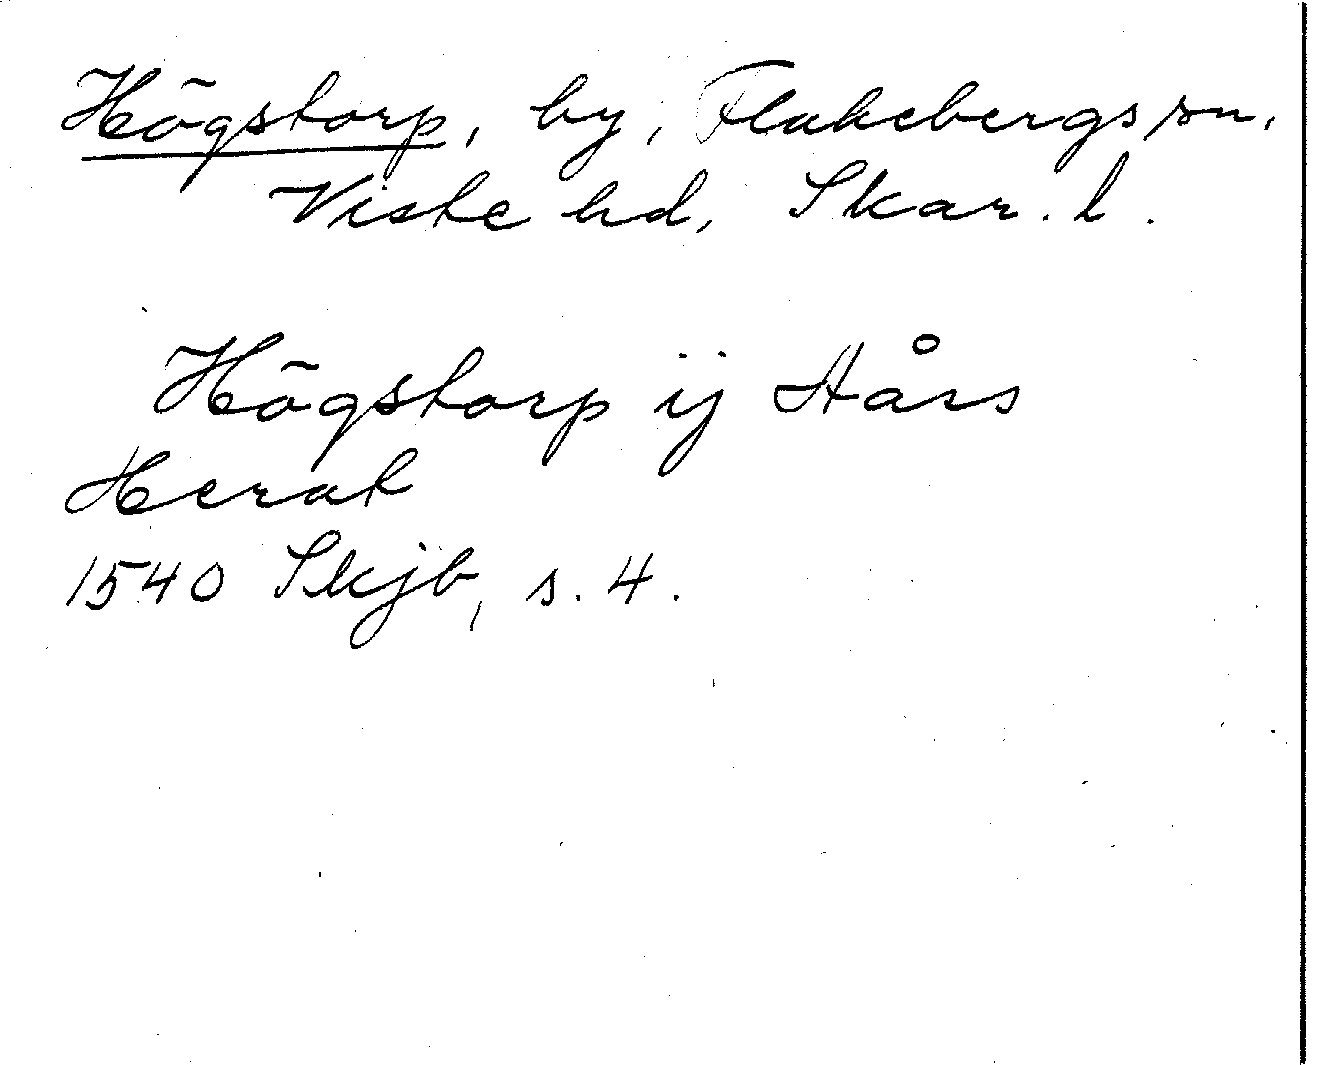 Högstorp, by, Flakebergs sn,
Viste hd, Skar. l.
Högstorp ij Hårs
Herat
1540 Skjb, s. 4.